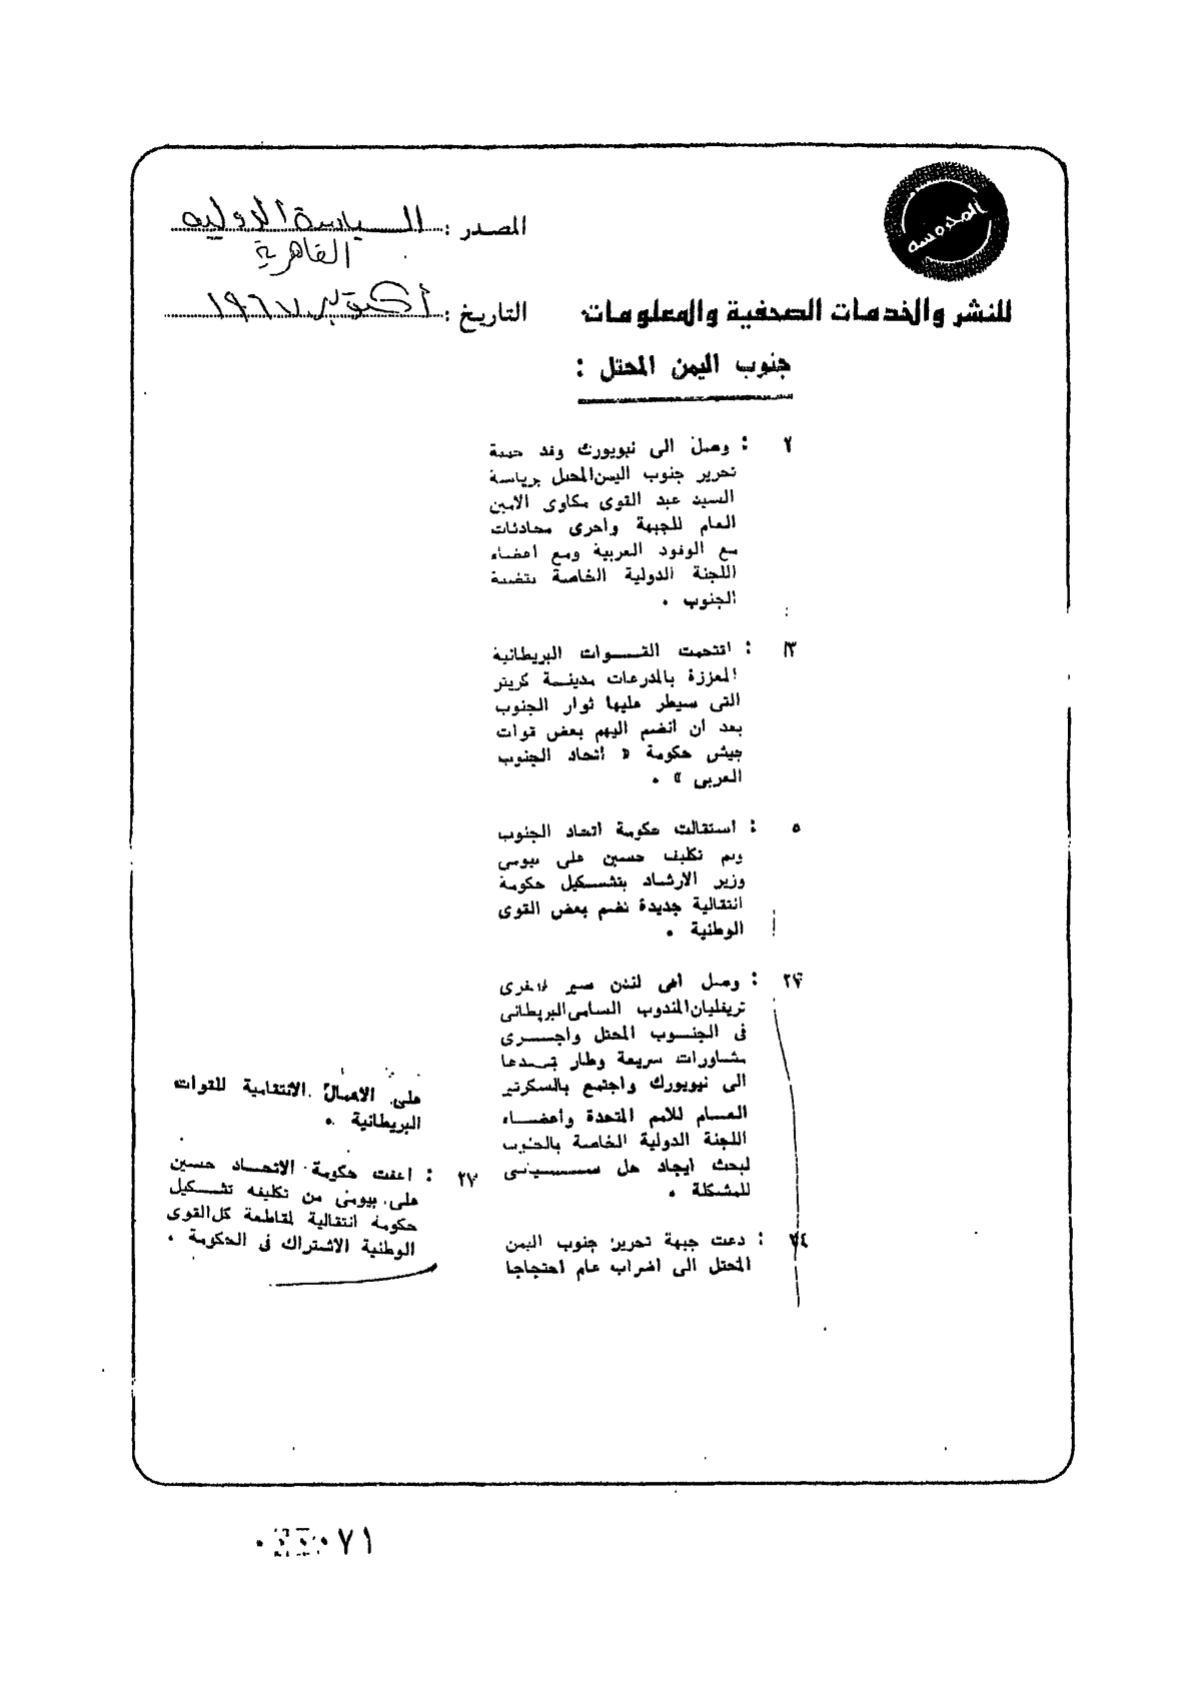 المحروسة
المصدر : السياسة الدولية
القاهرية
للنشر والخدمات الصحفية والمعلومات
التاريخ : أكتوبر ١٩٦٧
جنوب اليمن المحتل :
٢ : وصل الى نيويورك وفد جبهة
تحرير جنوب اليمن المحتل برياسة
السيد عبد القوى مكاوى الامين
العام للجبهة واجرى محادثات
مع الوفود العربية ومع اعضاء
اللجنة الدولية الخاصة بقضية
الجنوب .
٣ : اقتحمت القـوات البريطانية
المعززة بالمدرعات مدينـة كريتر
التى سيطر عليها ثوار الجنوب
بعد ان انضم اليهم بعض قوات
جيش حكومة « اتحاد الجنوب
العربى » .
٥ : استقالت حكومة اتحاد الجنوب
وتم تكليف حسين على بيومى
وزير الارشاد بتشـكيل حكومة
انتقالية جديدة تضم بعض القوى
الوطنية .
: وصل الى لندن سير
تريفليان المندوب السامى البريطانى
فى الجنـوب المحتل واجـرى
مشاورات سريعة وطار بعـدها
الى نيويورك واجتمع بالسكرتير
العـام للامم المتحدة وأعضـاء
اللجنة الدولية الخاصة بالجنوب
لبحث ايجاد حل سـياسى
للمشكلة .
٢٤ : دعت جبهة تحرير جنوب اليمن
المحتل الى اضراب عام احتجاجا
على الاعمال الانتقامية للقوات
البريطانية .
٢٧ : اعفت حكومة الاتحـاد حسين
على بيومى من تكليفه تشـكيل
حكومة انتقالية لمقاطعة كل القوى
الوطنية الاشتراك فى الحكومة .
٧١